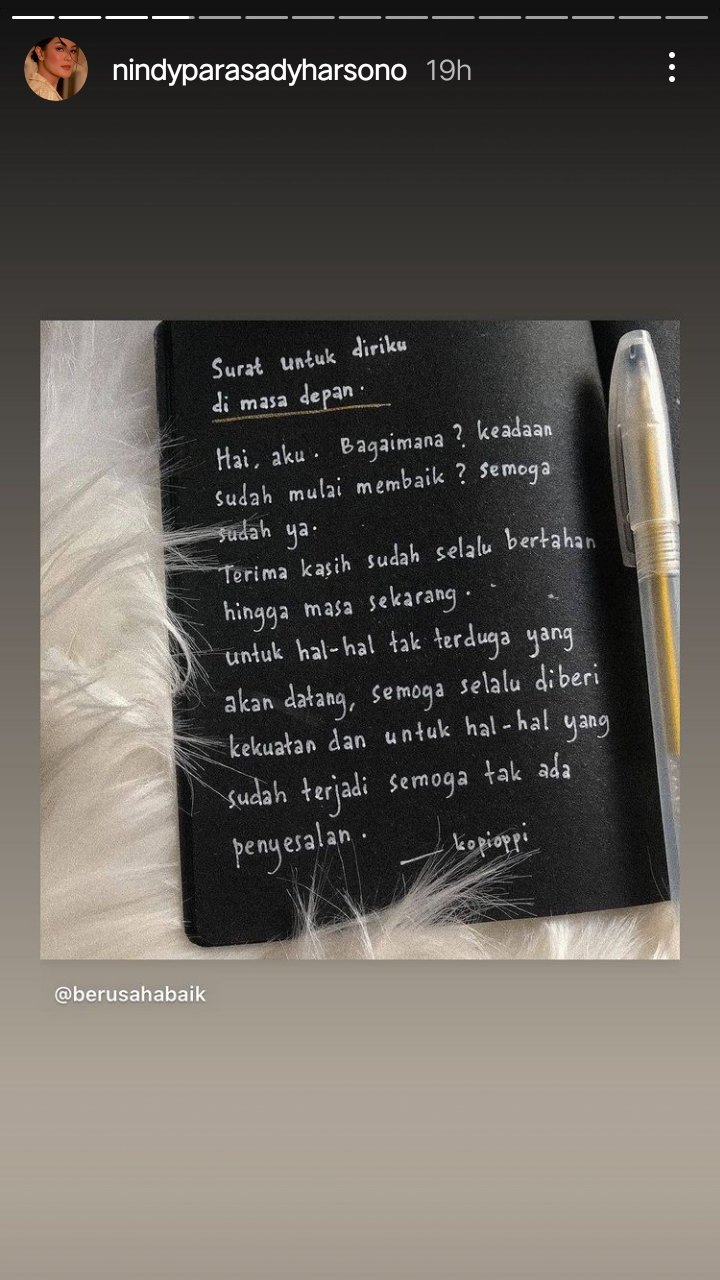 nindyparasadyharsono 19h
Surat untuk diriku
di masa depan.
Hai, aku. Bagaimana? keadaan
sudah mulai membaik? semoga
sudah ya.
Terima kasih sudah selalu bertahan
hingga masa sekarang.
untuk hal-hal tak terduga yang
akan datang, semoga selalu diberi
kekuatan dan untuk hal-hal yang
sudah terjadi semoga tak ada
penyesalan.
— kopioppi
@berusahabaik